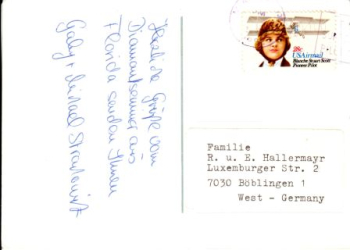 Herzliche Grüße vom
Diamantseminar aus
Florida senden Ihnen
Gaby + Michael
28c
USAirmail
Blanche Stuart Scott
Pioneer Pilot
Familie
R. u. E. Hallermayr
Luxemburger Str. 2
7030 Böblingen 1
West - Germany